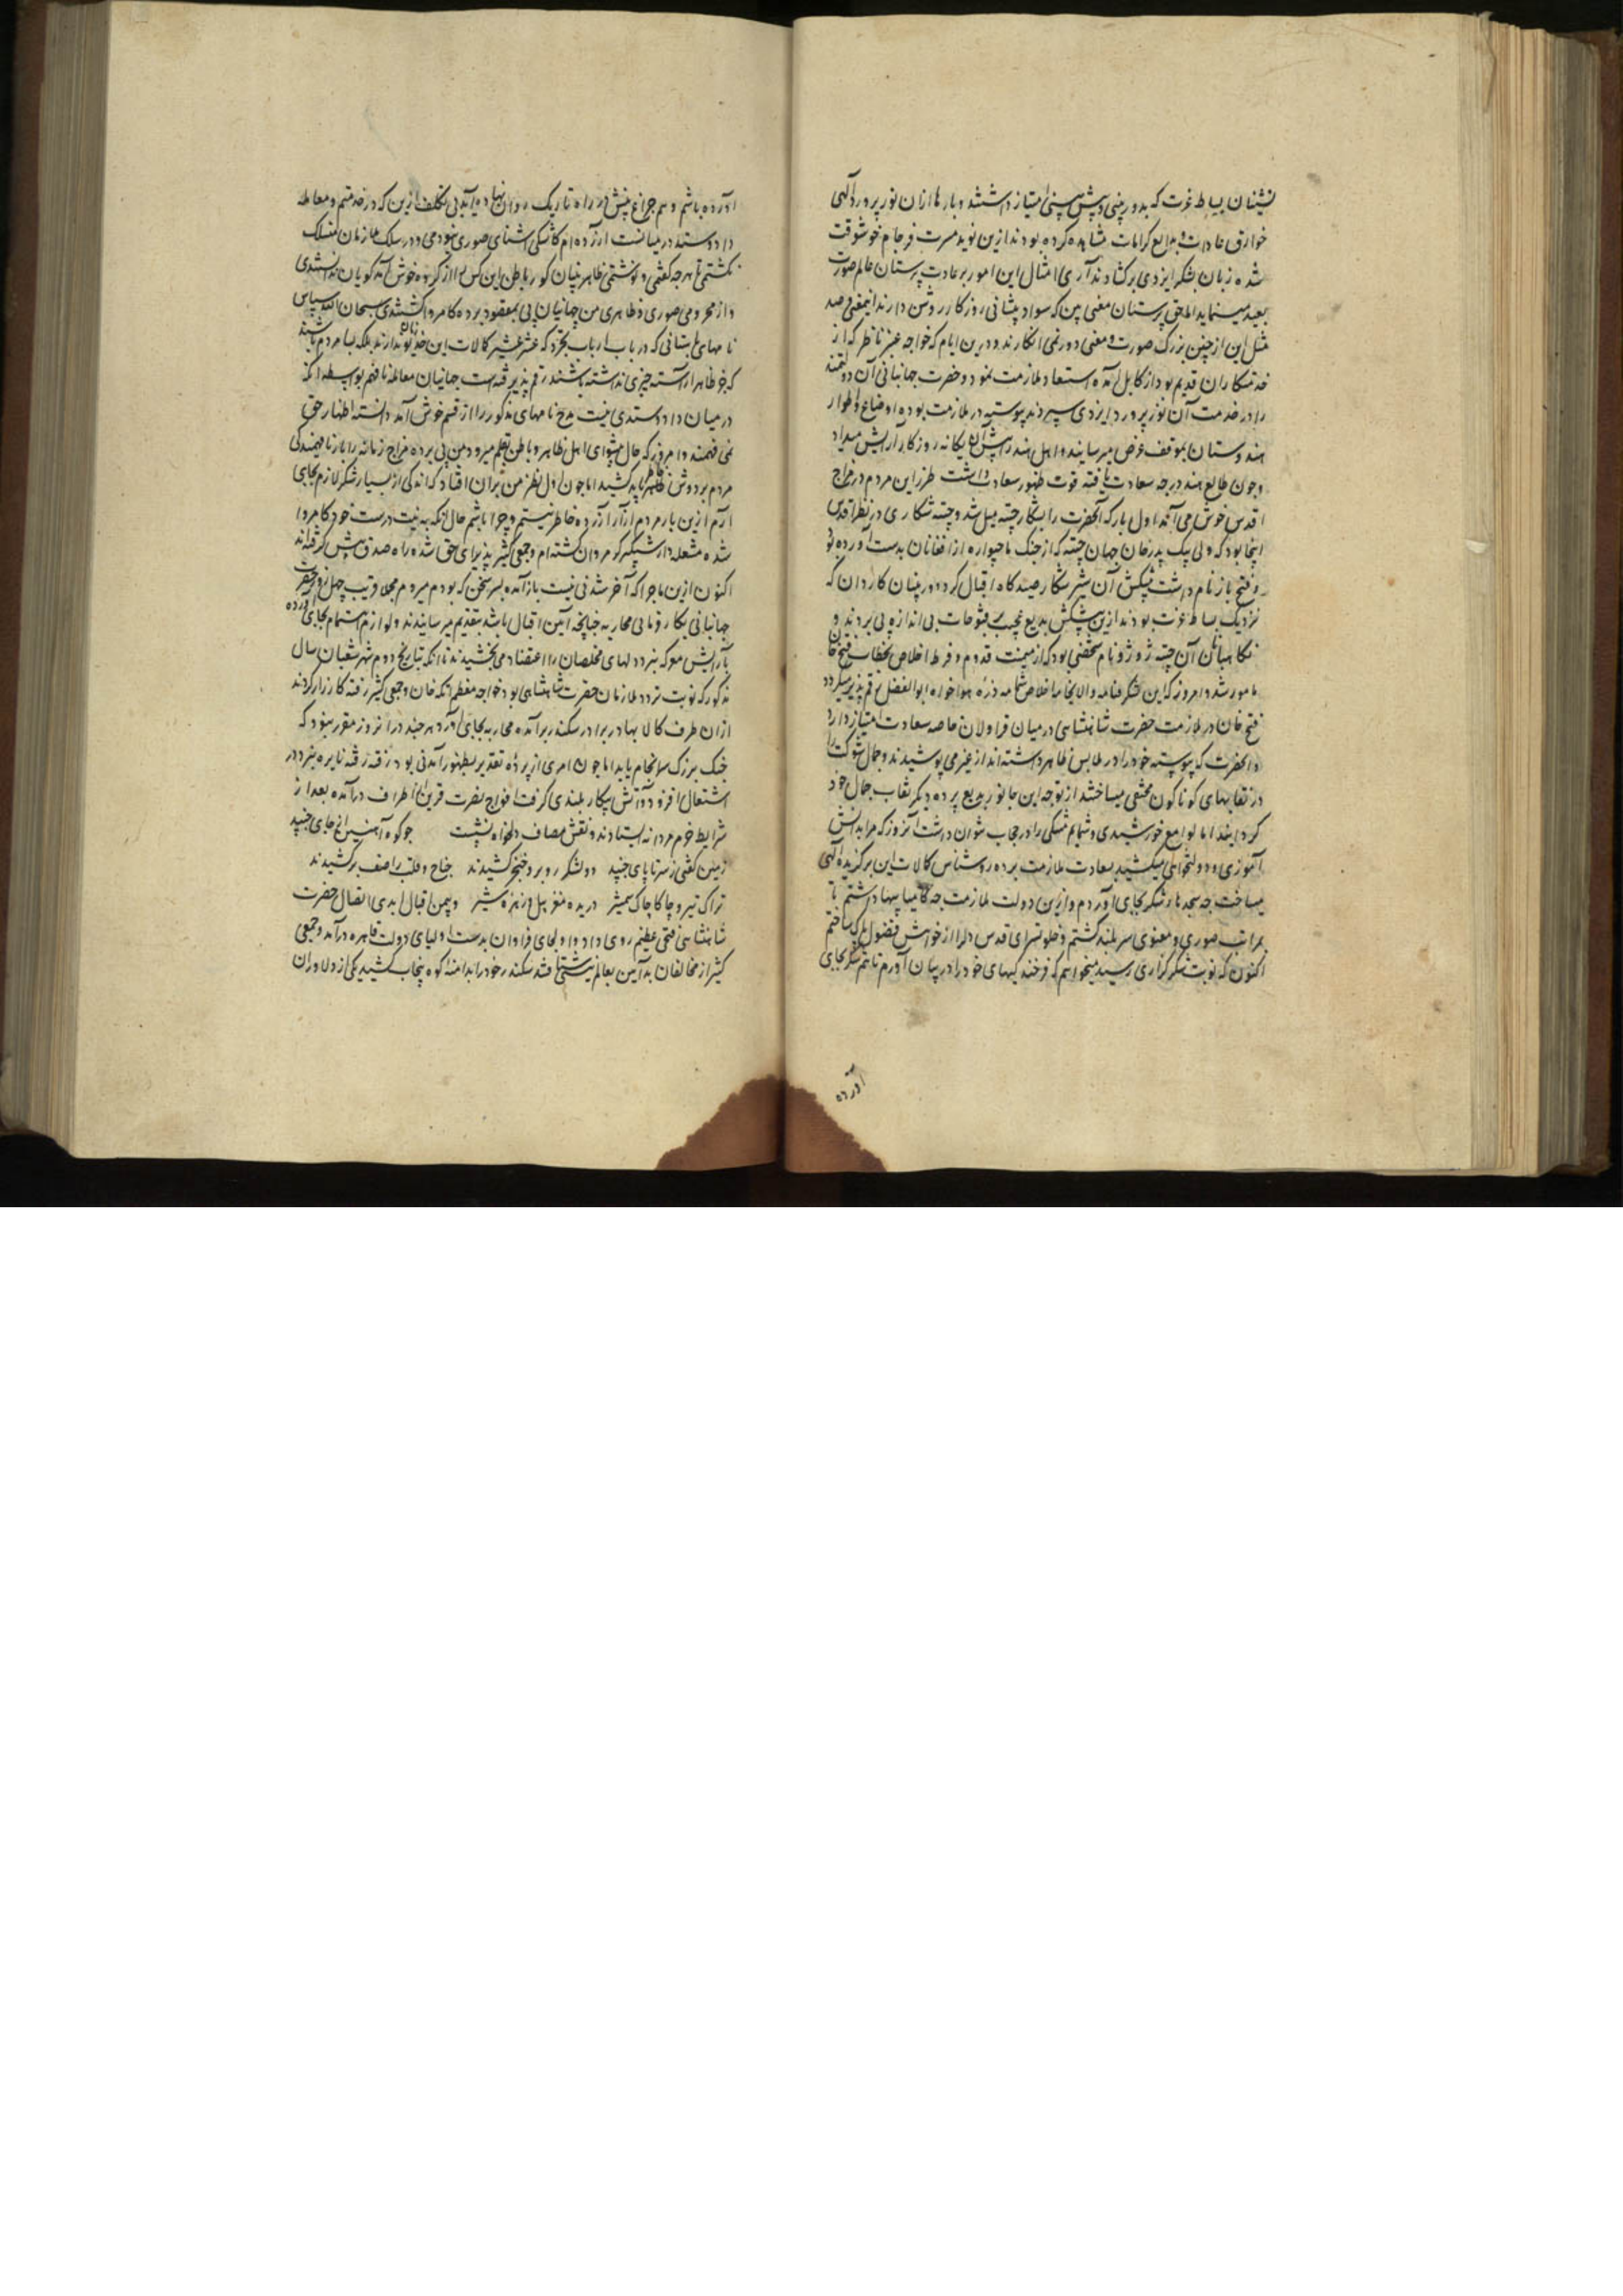 نشینان بساط عزت که بدوربینی و پیش بینی امتیاز داشتند و بارها ازان نور پرورد الهی
خوارق عادات و بدایع کرامات مشاهده کرده بودند ازین نوید مسرت فرجام خوشوقت
شده زبان بشکر ایزدی برکشادند آری امثال این امور بر عادت پرستان عالم صورت
بعید مینماید اما حق پرستان معنی بین که سواد پیشانی روزکار روشن دارند اینمعنی و صد
مثل این از چنین بزرک صورت و معنی دور نمی انکارند و درین ایام که خواجه عنبر ناظر که از
خدمتکاران قدیم بود از کابل آمده استسعاد ملازمت نمود و حضرت جهانبانی آن دولتمند
را در خدمت آن نور پرورد ایزدی سپردند پیوسته در ملازمت بوده اوضاع و اطوار
هندوستان بموقف عرض میرسانید و اهل هند را پیش آن یکانه روزکار آرایش میداد
و چون طالع هند درجه سعادت یافته قوت ظهور سعادت داشت طرز این مردم در مزاج
اقدس خوش می آمد اول بار که آنحضرت را بشکار چیته میل شد و چیته شکاری در نظر اقدس
اینجا بود که ولی بیک پدر خان جهان چیته که از جنک ماچیواره از افغانان بدست آورده بود
و فتح باز نام داشت پیشکش آن شیر شکار صیدکاه اقبال کرد و دوربینان کاردان که
نزدیک بساط عزت بودند ازین پیشکش بدیع عجیب پی بفتوحات بی اندازه می بردند و
نکاهبان آن چیته دوندو نام شخصی بود که از میمنت قدوم و فرط اخلاص بخطاب فتح خان
مامور شد و امروز که این شکرفنامه والا بخامه اخلاص شمامه ذره هواخواه ابوالفضل رقم پذیر میکردد
فتح خان در ملازمت حضرت شاهنشاهی در میان قراولان خاصه سعادت امتیاز دارد
و آنحضرت که پیوسته خود را در ملابس ظاهر داشته انداز غیر می پوشیدند و جمال شوکت را
در نقابهای کوناکون مختفی میساختند از توجه این جانور بدیع پرده دیکر نقاب جمال خود
کردانیدند اما لوامع خورشیدی و شمایم مشکی را در حجاب نتوان داشت آنروز که مرا بدانش
آموزی و دولتخواهی میکشید بسعادت ملازمت برده روشناس کمالات این برکزیده الهی
میساخت چه سجدهای شکر بجای آوردم و ازین دولت ملازمت چه کامیابیها داشتم تا
بمراتب صوری و معنوی سربلند کشتم و خلوتسرای قدس دلرا از خواهش فضول پاک ساختم
اکنون که نوبت شکرکزاری رسید میخواهم که فرخندکیهای خود را در بیان آورم تا هم شکر بجای
آورده
آورده باشم و هم چراغ بینش در راه تاریک روان نهاده آید بی تکلف ازین که در خدمتم و معامله
داد و ستد در میانست آزرده ام کاشکی آشنای صوری نبودمی و در سلک ملازمان منسلک
نکشتمی تا هرچه کفتمی و نوشتمی ظاهر بینان کور باطن این کس را از کروه خوش آمد کویان ندانستندی
و از محرومی صوری و ظاهری من جهانیان پی بمقصود برده کامروا کشتندی سبحان الله سپاس
نامهای باستانی که در باب ارباب تجرد که عشر عشیر کمالات این خدیو زمان ندارند بلکه بسا مردم باشند
که جز ظاهر آراسته چیزی نداشته باشند رقم پذیرفته است جهانیان معامله نافهم بواسطه آنکه
در میان داد و ستدی نیست مدح نامهای مذکور را از قسم خوش آمد دانسته اظهار حق
نمی فهمند و امروز که حال پیشوای اهل ظاهر و باطن بقلم میرود من پی برده مزاج زمانه را بار نافهمیدکی
مردم بر دوش خاطر باید کشید اما چون اول نظر من بران افتاد که اندکی از بسیار شکر لازم بجای
آرم ازین بار مردم آزار آزرده خاطر نیستم و چرا باشم حال آنکه به نیت درست خود کامروا
شده مشعله دار شبکیر کورمردان کشته ام و جمعی کثیر پذیرای حق شده راه صدق پیش کرفته اند
اکنون ازین ماجرا که آخر شدنی نیست باز آمده بسر سخن که بودم میروم مجملا قریب چهل روز حضرت
جهانبانی بکار روائی محاربه چنانچه آئین اقبال باشد بتقدیم میرسانیدند و لوازم اهتمام بجای آورده
بآرایش معرکه نبرد دلهای مخلصان را اعتضاد می بخشیدند تا آنکه بتاریخ دوم شهر شعبان سال
مذکور که نوبت تردد ملازمان حضرت شاهنشاهی بود خواجه معظم اتکه خان و جمعی کثیر رفته کارزار کردند
ازان طرف کالا بهادر برادر سکندر برآمده محاربه بجای آورد هر چند در آنروز مقرر نبود که
جنک بزرک سرانجام یابد اما چون امری از پرده تقدیر بظهور آمدنی بود رفته رفته نایره نبرد در
اشتعال افزود و آتش پیکار بلندی کرفت افواج نصرت قرین از اطراف درآمده بعد از
شرایط حزم مردانه ایستادند و نقش مصاف دلخواه نشست    چو کوه آهنین از جای جنبید
زمین کفتی ز سر تا پای جنبید    دو لشکر روبرو خنجر کشیدند    جناح و قلب را صف برکشیدند
تراک تیر و چاکاچاک شمشیر    دریده مغز پیل و زهره شیر    و بیمن اقبال ابدی اتصال حضرت
شاهنشاهی فتحی عظیم روی داد و اولجای فراوان بدست اولیای دولت قاهره درآمد و جمعی
کثیر از مخالفان بد آیین بعالم نیستی شتافتند سکندر خود را بدامنه کوه پنجاب کشید یکی از دلاوران